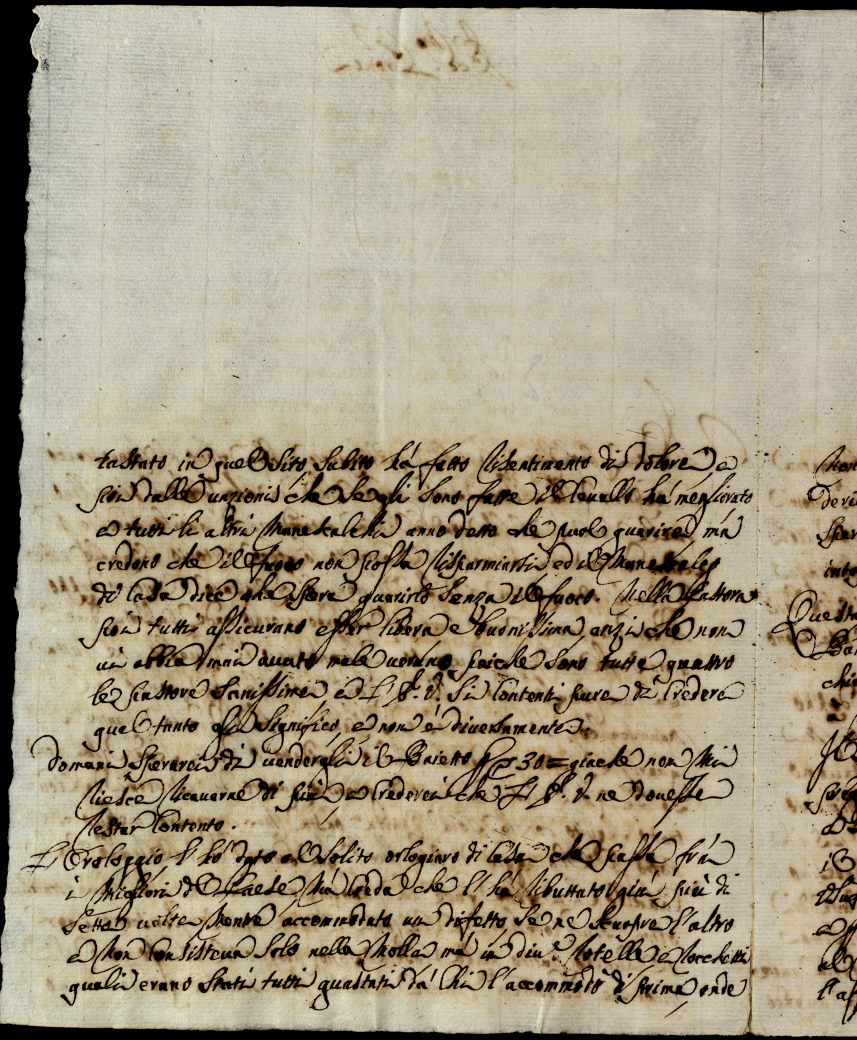 tastato in quel sito subito hà fatto risentimento di dolore, e
poi dalle unzioni che se gli sono fatte il Cavallo hà megliorato
e tutti li altri Maneskalchi anno detto che puol guarire, mà
credono che il fuoco non possa risparmiarsi ed il Maneskalco
di Casa dice che spera guarirlo senza il fuoco. Nella pastora
poi tutti assicurano esser libera e buonissima, anzi che non
vi abbia mai avuto male veruno, poiche sono tutte quattro
le pastore sanissime e V. S. Si Contenti pure di credere
quel tanto gli significo, e non è diversamente.
Domani sperarei di vendergli il Baietto p 30 = giache non mi
riesce ricavarne di più e crederei che V. S. ne dovesse
restar Contento.
L'Orologgio l'hò dato al solito orlogiaro di Casa che passa frà
i migliori del Paese Mà Creda che l'hà ributtato giù più di
sette volte Mentre accommodato un difetto se ne scuopre l'altro
e Non Consisteva solo nella Molla mà in div.e Rotelle e Rocchetti
quali erano stati tutti guastati da chi l'accommodò di prima onde
Non
Questa
chi